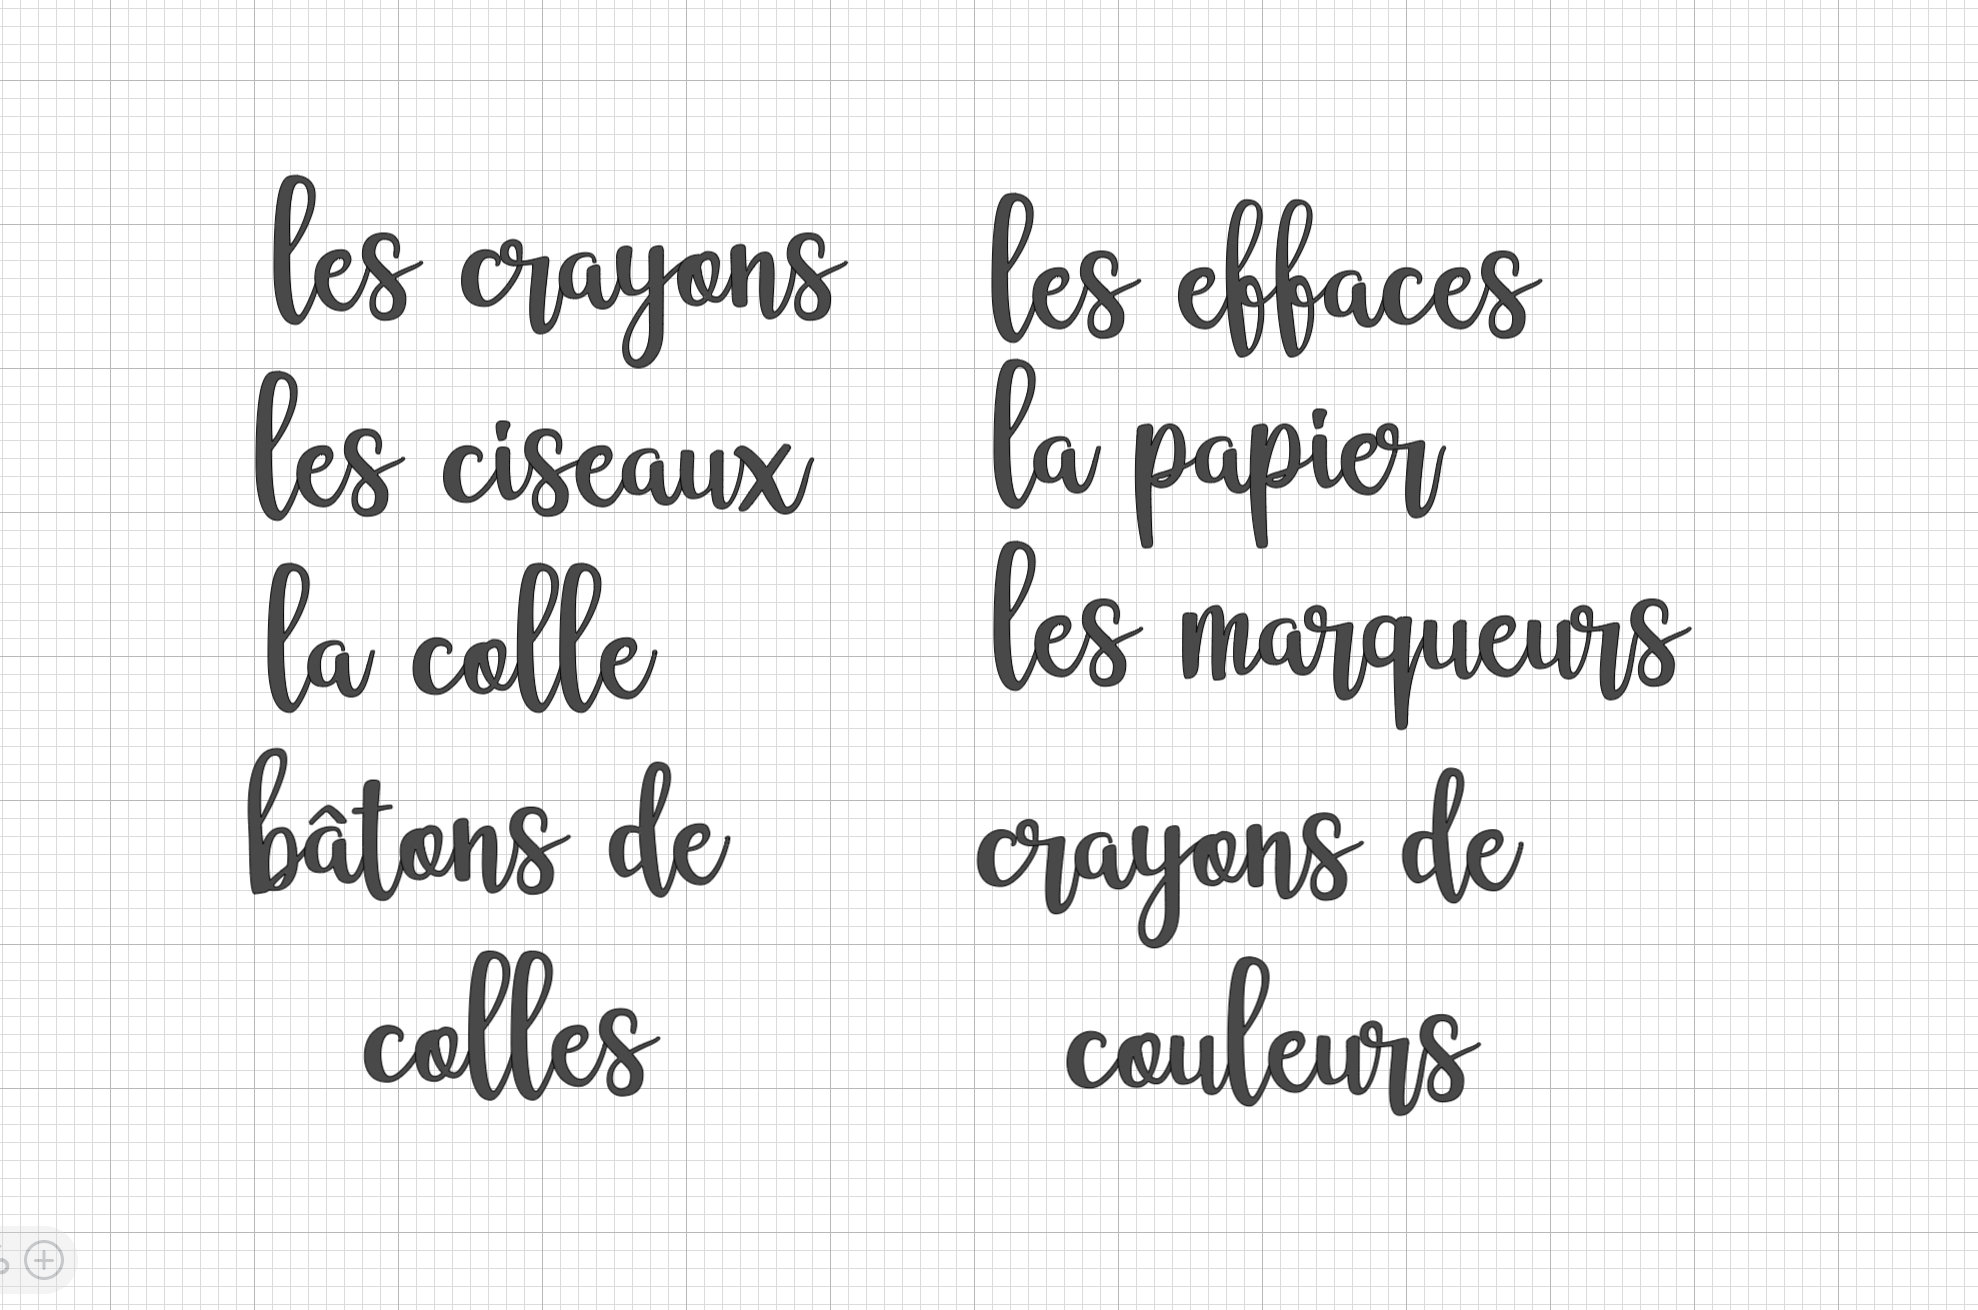 les crayons
les ciseaux
la colle
bâtons de
colles
les effaces
la papier
les marqueurs
crayons de
couleurs